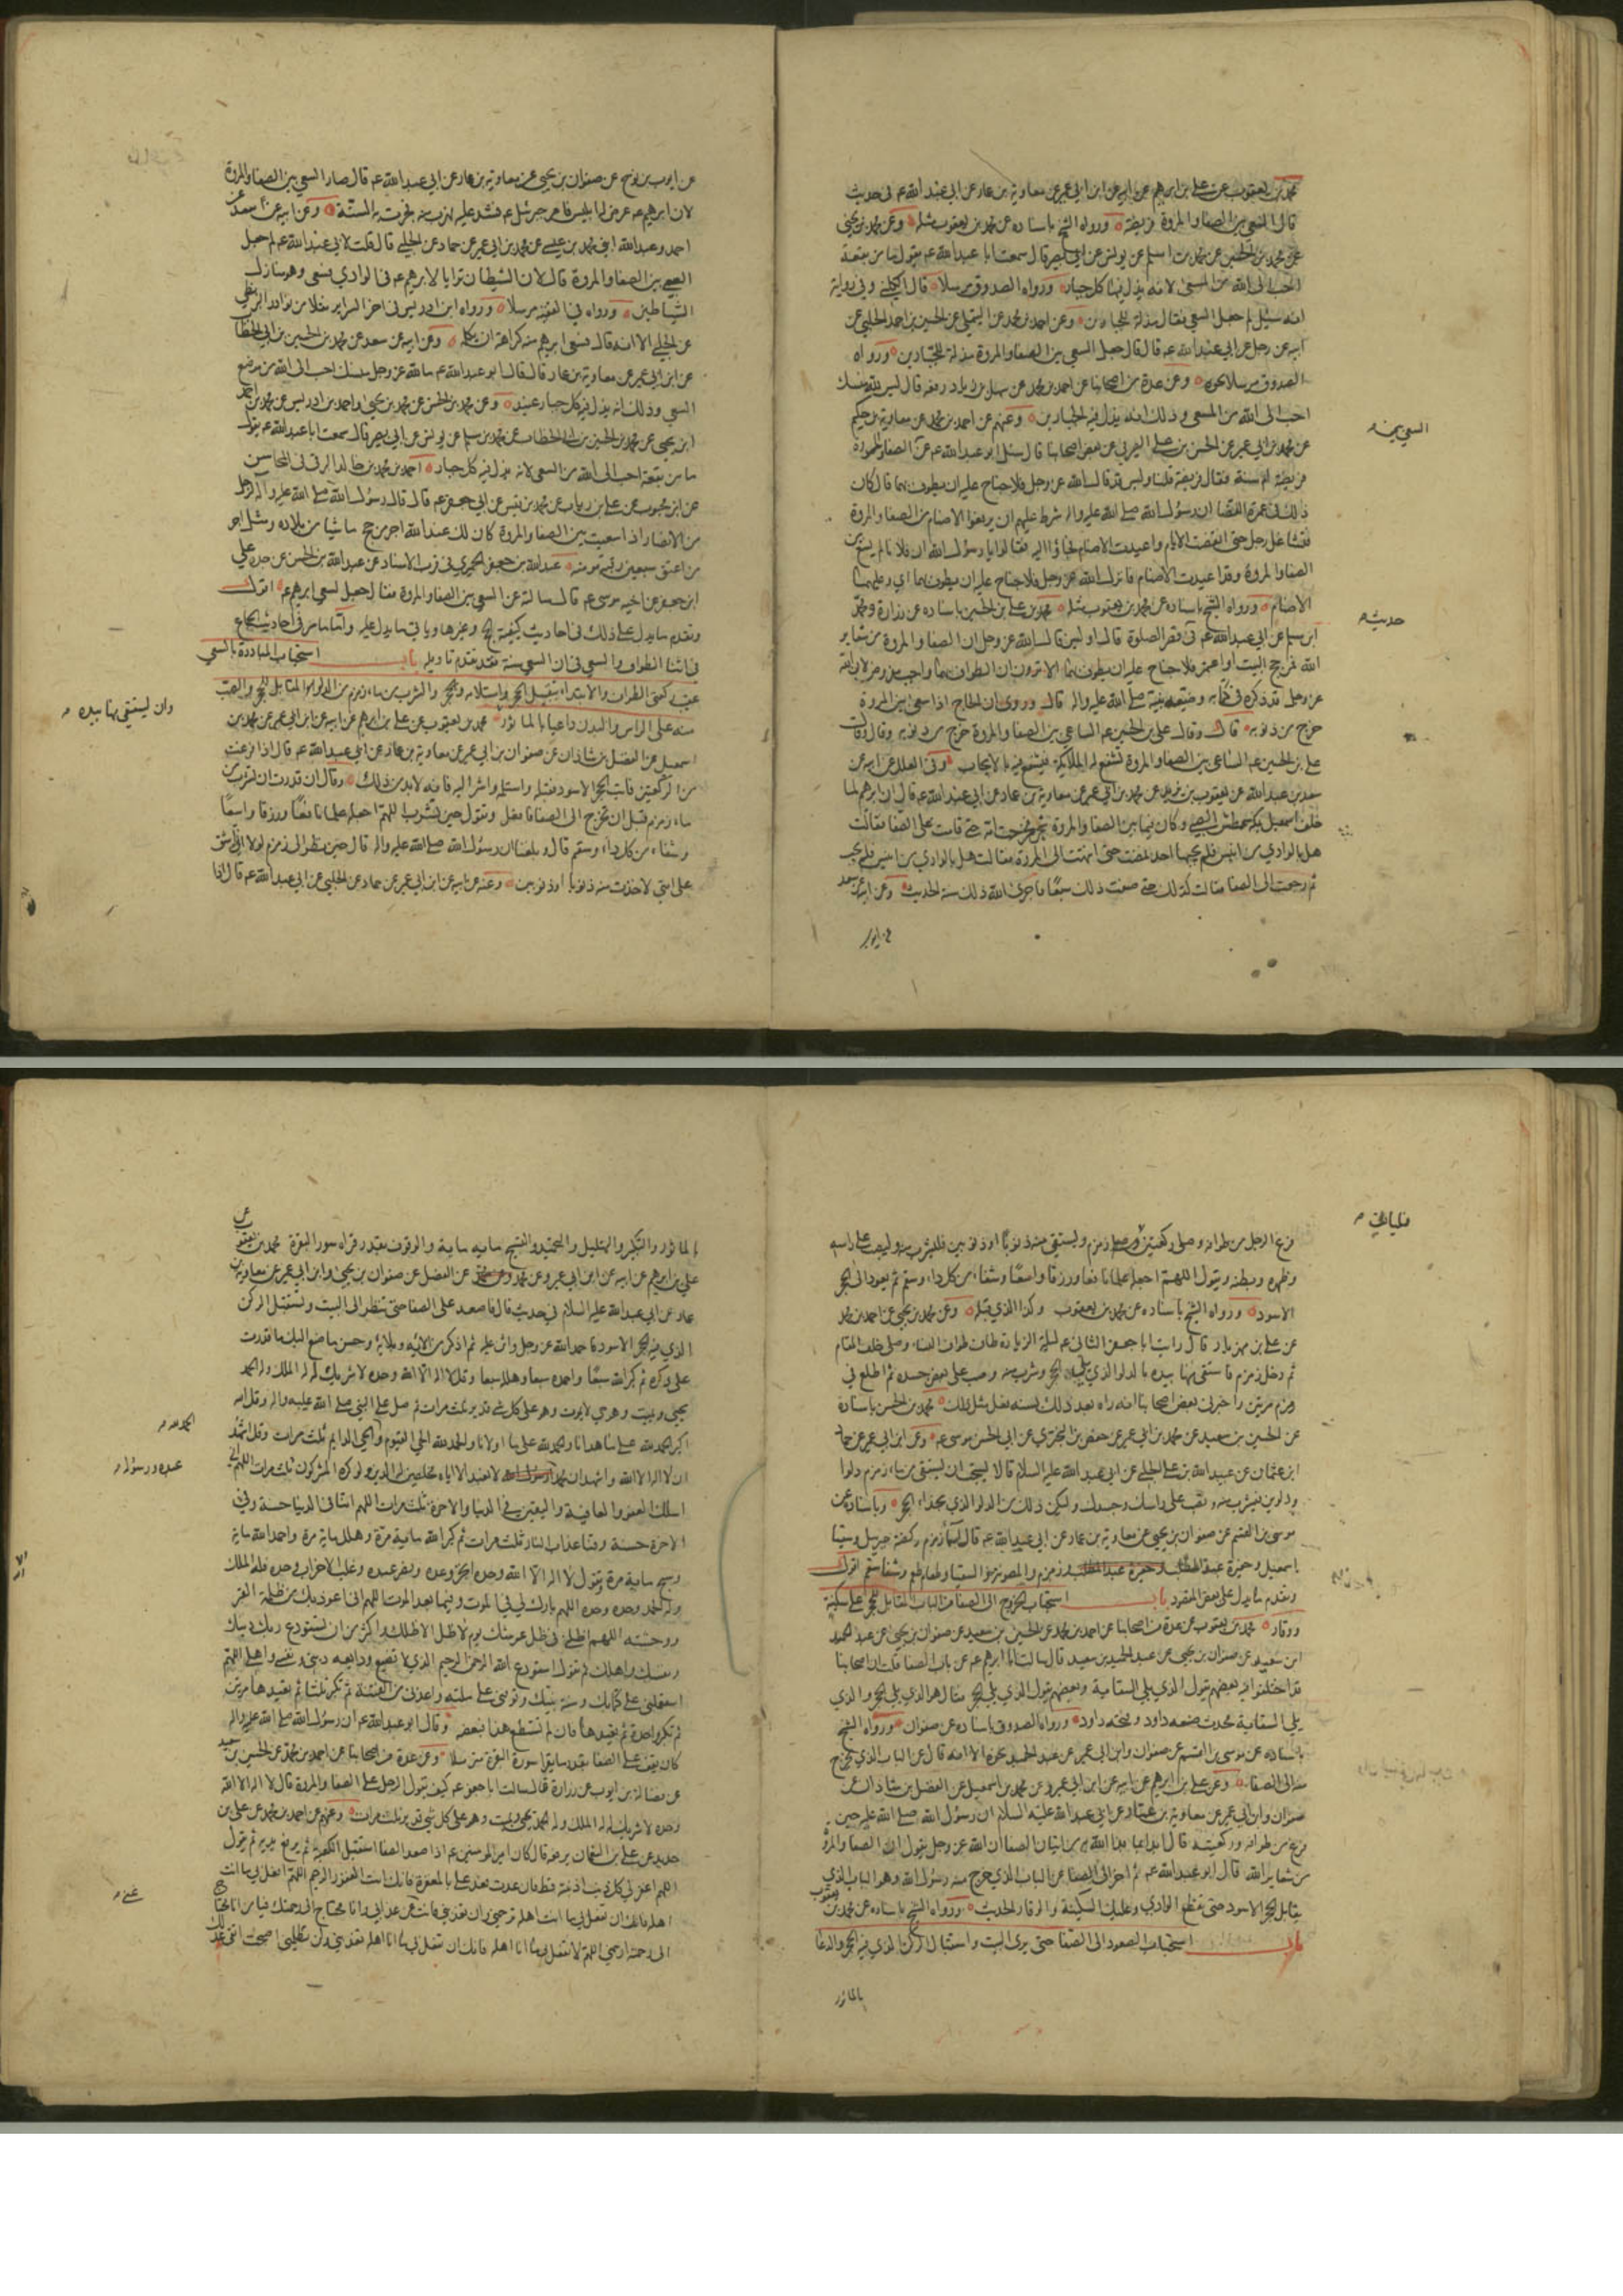 محمد بن يعقوب عن علي بن ابرهيم عن ابيه عن ابن ابي عمير عن معاوية بن عمار عن ابي عبد الله عم في حديث
قال السعي بين الصفا والمروة فريضة ورواه الشيخ باسناده عن محمد بن يعقوب مثله وعن محمد بن يحيى
عن محمد بن الحسين عن محمد بن اسلم عن يونس عن ابي بصير قال سمعت ابا عبد الله عم يقول ما من بقعة
احب الى الله من المسعى لانه يذل فيها كل جبار ورواه الصدوق مرسلا قال الكليني وفي رواية
انه سئل لم جعل السعي فقال مذلة للجبارين وعن احمد بن محمد عن التيملي عن الحسين بن احمد الحلبي عن
ابيه عن رجل عن ابي عبد الله عم قال قال جعل السعي بين الصفا والمروة مذلة للجبارين ورواه
الصدوق مرسلا نحوه وعن عدة من اصحابنا عن احمد بن محمد عن سهل بن زياد رفعه قال ليس لله منسك
احب الى الله من المسعى وذلك انه يذل فيه الجبارين وعنهم عن احمد بن محمد عن معاوية بن حكيم
السعي بين م
عن محمد بن ابي عمير عن الحسن بن علي الصيرفي عن بعض اصحابنا قال سئل ابو عبد الله عم عن الصفا والمروة
فريضة ام سنة فقال فريضة قلنا وليس قد قال الله عز وجل فلا جناح عليه ان يطوف بهما قال كان
ذلك في عمرة القضا ان رسول الله صلى الله عليه واله شرط عليهم ان يرفعوا الاصنام من الصفا والمروة
فتشاغل رجل حتى انقضت الايام واعيدت الاصنام فجاؤا اليه فقالوا يا رسول الله ان فلانا لم يسع بين
الصفا والمروة وقد اعيدت الاصنام فانزل الله عز وجل فلا جناح عليه ان يطوف بهما اي وعليهما
الاصنام ورواه الشيخ باسناده عن محمد بن يعقوب مثله محمد بن علي بن الحسين باسناده عن زرارة ومحمد
حديث م
ابن مسلم عن ابي عبد الله عم في قصر الصلوة قال اوليس قال الله عز وجل ان الصفا والمروة من شعاير
الله فمن حج البيت او اعتمر فلا جناح عليه ان يطوف بهما الا ترون ان الطواف بهما واجب مفروض لان الله
عز وجل قد ذكره في كتابه وصنعه نبيه صلى الله عليه واله قال وروي ان الحاج اذا سعى بين المروة
خرج من ذنوبه قال وقال علي بن الحسين عم الساعي بين الصفا والمروة خرج من ذنوبه وقال قال
علي بن الحسين عم الساعي بين الصفا والمروة تشفع له الملائكة فيشفع فيه بالايجاب وفي العلل عن ابيه عن
سعد بن عبد الله عن يعقوب بن يزيد عن محمد بن ابي عمير عن معاوية بن عمار عن ابي عبد الله عم قال ان ابرهيم لما
خلف اسمعيل بمكة عطش الصبي وكان فيما بين الصفا والمروة شجر فخرجت امه حتى قامت على الصفا فقالت
هل بالوادي من انيس فلم يجبها احد فمضت حتى انتهت الى المروة فقالت هل بالوادي من انيس فلم يجب
ثم رجعت الى الصفا فقالت كذلك حتى صنعت ذلك سبعا فاجرى الله ذلك سنة الحديث وعن ابيه عن سعد
عن ايوب
عن ايوب بن نوح عن صفوان بن يحيى عن معاوية بن عمار عن ابي عبد الله عم قال صار السعي بين الصفا والمروة
لان ابرهيم عم عرض له ابليس فامره جبرئيل عم فشد عليه فهرب منه فجرت به السنة وعن ابيه عن سعد عن
احمد وعبد الله ابني محمد بن عيسى عن محمد بن ابي عمير عن حماد عن الحلبي قال قلت لابي عبد الله عم لم جعل
السعي بين الصفا والمروة قال لان الشيطان ترايا لابرهيم عم في الوادي فسعى وهو منازل
الشياطين ورواه في الفقيه مرسلا ورواه ابن ادريس في اخر السراير نقلا من نوادر البزنطي
عن الحلبي الا انه قال فسعى ابرهيم منه كراهة ان يكلمه وعن ابيه عن سعد عن محمد بن الحسين بن ابي الخطاب
عن ابن ابي عمير عن معاوية بن عمار قال قال ابو عبد الله عم ما لله عز وجل منسك احب الى الله من موضع
السعي وذلك انه يذل فيه كل جبار عنيد وعن محمد بن الحسن عن محمد بن يحيى واحمد بن ادريس عن محمد بن احمد
ابن يحيى عن محمد بن الحسين بن ابي الخطاب عن محمد بن مسلم عن يونس عن ابي بصير قال سمعت ابا عبد الله عم يقول
ما من بقعة احب الى الله من السعي لانه يذل فيه كل جبار احمد بن محمد بن خالد البرقي في المحاسن
عن ابن محبوب عن علي بن رياب عن محمد بن قيس عن ابي جعفر عم قال قال رسول الله صلى الله عليه واله لرجل
من الانصار اذا سعيت بين الصفا والمروة كان لك عند الله اجر من حج ماشيا من بلاده ومثل اجر
من اعتق سبعين رقبة مؤمنة عبد الله بن جعفر الحميري في قرب الاسناد عن عبد الله بن الحسن عن جده علي
ابن جعفر عن اخيه موسى عم قال سالته عن السعي بين الصفا والمروة فقال جعل لسعي ابرهيم عم اقول
وتقدم ما يدل على ذلك في احاديث كيفية الحج وغيرها وياتي ما يدل عليه واما ما مر في احاديث الجماع
في اثنا الطواف والسعي في ان السعي سنة فقد تقدم تاويله باب استحباب المبادرة بالسعي
عقيب ركعتي الطواف والابتداء بتقبيل الحجر واستلامه والشرب من ماء زمزم من الدلو المقابل للحجر والصب
وان يستقي بها بيده م
منه على الراس والبدن داعيا بالماثور محمد بن يعقوب عن علي بن ابرهيم عن ابيه عن ابن ابي عمير عن محمد بن
اسمعيل عن الفضل بن شاذان عن صفوان بن ابي عمير عن معاوية بن عمار عن ابي عبد الله عم قال اذا فرغت
من الركعتين فات الحجر الاسود فقبله واستلمه واشر اليه فانه لا بد من ذلك وقال ان قدرت ان تشرب من
ماء زمزم قبل ان تخرج الى الصفا فافعل وتقول حين تشرب اللهم اجعله علما نافعا ورزقا واسعا
وشفاء من كل داء وسقم قال وبلغنا ان رسول الله صلى الله عليه واله قال حين نظر الى زمزم لولا ان اشق
على امتي لاخذت منه ذنوبا او ذنوبين وعنه عن ابيه عن ابن ابي عمير عن حماد عن الحلبي عن ابي عبد الله عم قال اذا
فرغ الرجل من طوافه وصلى ركعتين زمزم ويستقي منه ذنوبا او ذنوبين فليشرب منه وليصب على راسه
فليات م
وظهره وبطنه ويقول اللهم اجعله علما نافعا ورزقا واسعا وشفاء من كل داء وسقم ثم يعود الى الحجر
الاسود ورواه الشيخ باسناده عن محمد بن يعقوب وكذا الذي قبله وعن محمد بن يحيى عن احمد بن محمد
عن علي بن مهزيار قال رايت ابا جعفر الثاني عم ليلة الزيارة طاف طواف النساء وصلى خلف المقام
ثم دخل زمزم فاستقى منها بيده بالدلو الذي يلي الحجر وشرب منه وصب على بعض جسده ثم اطلع في
زمزم مرتين واخبرني بعض اصحابنا انه راه بعد ذلك بسنة فعل مثل ذلك محمد بن الحسن باسناده
عن الحسين بن سعيد عن محمد بن ابي عمير عن حفص بن البختري عن ابي الحسن موسى عم وعن ابن ابي عمير عن حماد
ابن عثمان عن عبيد الله بن علي الحلبي عن ابي عبد الله عليه السلام قالا يستحب ان يستقى من ماء زمزم دلوا
ودلوين فيشرب منه وتصب على راسك وجسدك وليكن ذلك من الدلو الذي بحذاء الحجر وباسناده عن
موسى بن القسم عن صفوان بن يحيى عن معاوية بن عمار عن ابي عبد الله عم قال اسماء زمزم ركضة جبريل وسقيا
اسمعيل وحفيرة عبد المطلب وزمزم والمصونة والسقيا وطعام طعم وشفا سقم اقول
وتقدم ما يدل على بعض المقصود باب استحباب الخروج الى الصفا من الباب المقابل للحجر على سكينة
ووقار محمد بن يعقوب عن عدة من اصحابنا عن احمد بن محمد عن الحسين بن سعيد عن صفوان بن يحيى عن عبد الحميد
ابن سعيد عن صفوان بن يحيى عن عبد الحميد بن سعيد قال سالت ابا ابرهيم عم عن باب الصفا قلت ان اصحابنا
قد اختلفوا فيه بعضهم يقول الذي يلي السقاية وبعضهم يقول الذي يلي الحجر فقال هو الذي يلي الحجر والذي
يلي السقاية محدث صنعه داود وفتحه داود ورواه الصدوق باسناده عن صفوان ورواه الشيخ
باسناده عن موسى بن القسم عن صفوان وابن ابي عمير عن عبد الحميد نحوه الا انه قال عن الباب الذي يخرج
منه الى الصفا وعن علي بن ابرهيم عن ابيه عن ابن ابي عمير وعن محمد بن اسمعيل عن الفضل بن شاذان عن
صفوان وابن ابي عمير عن معاوية بن عمار عن ابي عبد الله عليه السلام ان رسول الله صلى الله عليه حين
فرغ من طوافه وركعتيه قال ابدا بما بدا الله به من اتيان الصفا ان الله عز وجل يقول ان الصفا والمروة
من شعاير الله قال ابو عبد الله عم ثم اخرج الى الصفا من الباب الذي خرج منه رسول الله وهو الباب الذي
يقابل الحجر الاسود حتى تقطع الوادي وعليك السكينة والوقار الحديث ورواه الشيخ باسناده عن محمد بن يعقوب
باب استحباب الصعود الى الصفا حتى يرى البيت واستقبال الركن الذي فيه الحجر والدعا
بالماثور
بالماثور والتكبير والتهليل والتحميد والتسبيح ماية ماية والوقوف بقدر قراءة سورة البقرة محمد بن يعقوب عن
علي بن ابرهيم عن ابيه عن ابن ابي عمير وعن محمد عن الفضل عن صفوان بن يحيى وابن ابي عمير عن معاوية بن
عمار عن ابي عبد الله عليه السلام في حديث قال فاصعد على الصفا حتى تنظر الى البيت وتستقبل الركن
الذي فيه الحجر الاسود فاحمد الله عز وجل واثن عليه ثم اذكر من الائه وبلائه وحسن ما صنع اليك ما قدرت
على ذكره ثم كبر الله سبعا واحمده سبعا وهلله سبعا وقل لا اله الا الله وحده لا شريك له له الملك وله الحمد
يحيي ويميت وهو حي لا يموت وهو على كل شي قدير ثلث مرات ثم صل على النبي صلى الله عليه واله وقل الله
اكبر الحمد لله على ما هدانا والحمد لله على ما اولانا والحمد لله الحي القيوم والحي الدايم ثلث مرات وقل اشهد
الحمد لله م
ان لا اله الا الله واشهد ان محمدا لا نعبد الا اياه مخلصين له الدين ولو كره المشركون ثلث مرات اللهم اني
عبده ورسوله م
اسئلك العفو والعافية واليقين في الدنيا والاخرة ثلث مرات اللهم اتنا في الدنيا حسنة وفي
الاخرة حسنة وقنا عذاب النار ثلث مرات ثم كبر الله ماية مرة وهلل ماية مرة واحمد الله ماية
وسبح ماية مرة وتقول لا اله الا الله وحده انجز وعده ونصر عبده وغلب الاحزاب وحده فله الملك
وله الحمد وحده وحده اللهم بارك لي في الموت وفيما بعد الموت اللهم اني اعوذ بك من ظلمة القبر
ووحشته اللهم اظلني في ظل عرشك يوم لا ظل الا ظلك واكثر من ان تستودع ربك دينك
ونفسك واهلك ثم تقول استودع الله الرحمن الرحيم الذي لا تضيع ودايعه ديني ونفسي واهلي اللهم
استعملني على كتابك وسنة نبيك وتوفني على ملته واعذني من الفتنة ثم تكبر ثلثا ثم تعيدها مرتين
ثم تكبر واحدة ثم تعيدها فان لم تستطع هذا فبعضه وقال ابو عبد الله عم ان رسول الله صلى الله عليه واله
كان يقف على الصفا بقدر ما يقرا سورة البقرة مترسلا وعن عدة من اصحابنا عن احمد بن محمد عن الحسين بن سعيد
عن فضالة بن ايوب عن زرارة قال سالت ابا جعفر عم كيف يقول الرجل على الصفا والمروة قال لا اله الا الله
وحده لا شريك له له الملك وله الحمد يحيي ويميت وهو على كل شي قدير ثلث مرات وعنهم عن احمد بن محمد عن علي بن
حديد عن علي بن النعمان يرفعه قال كان امير المومنين عم اذا صعد الصفا استقبل الكعبة ثم يرفع يديه ثم يقول
اللهم اغفر لي كل ذنب اذنبته قط فان عدت فعد علي بالمغفرة فانك انت الغفور الرحيم اللهم افعل بي ما انت
اهله فانك ان تفعل بي ما انت اهله ترحمني وان تعذبني فانت غني عن عذابي وانا محتاج الى رحمتك فيا من انا محتاج
الى رحمته ارحمني اللهم لا تفعل بي ما انا اهله فانك ان تفعل بي ما انا اهله تعذبني ولن تظلمني اصبحت اتقي عدلك